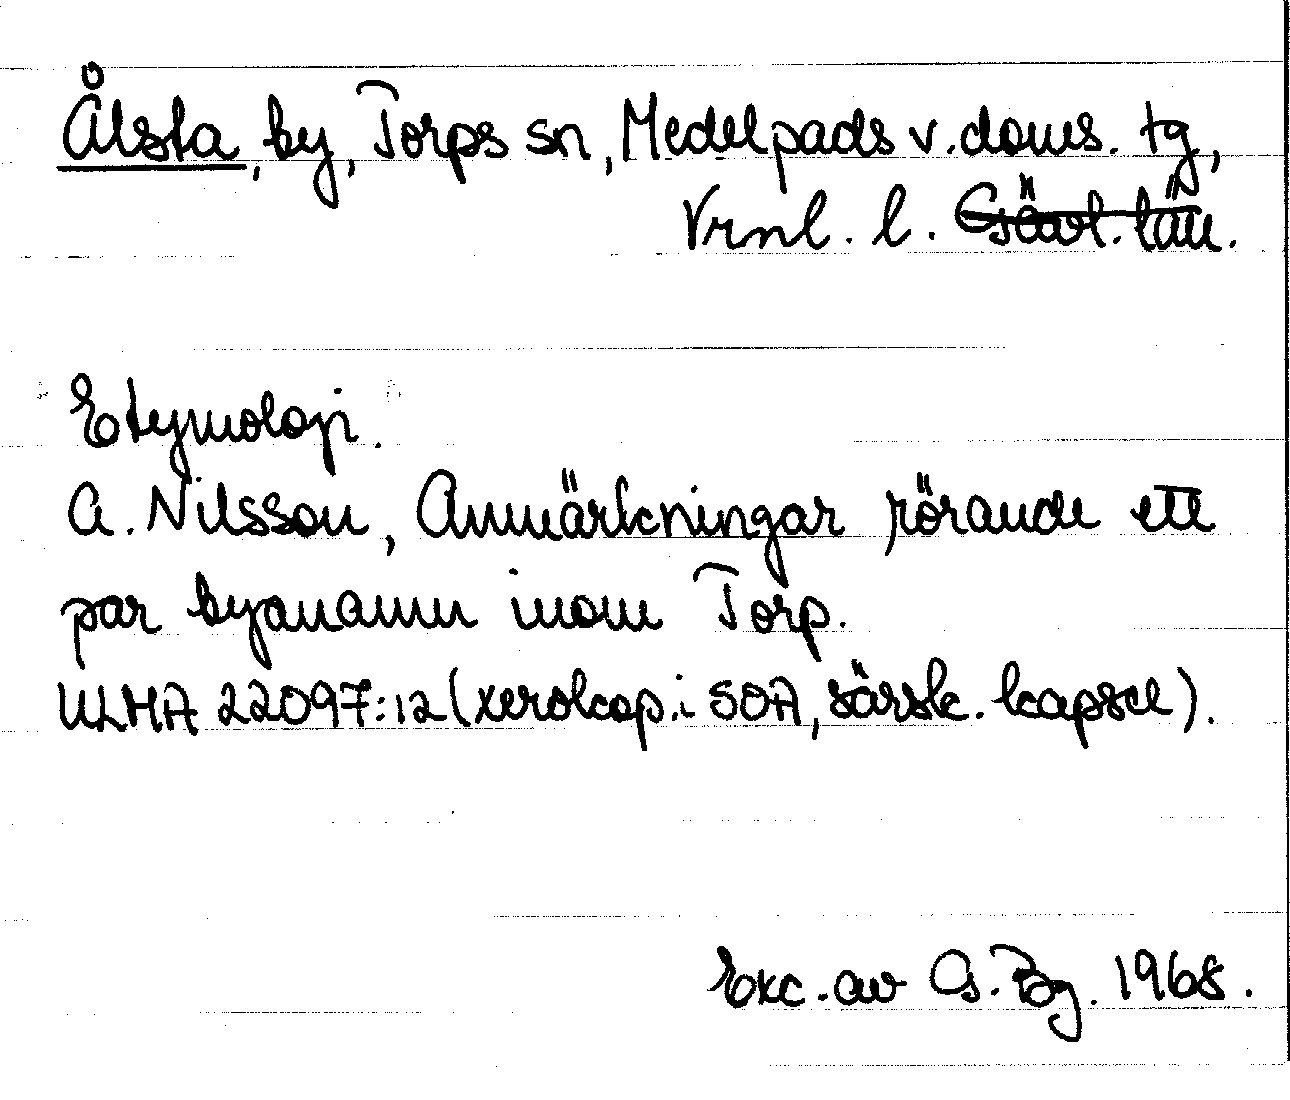 Ålsta, by, Torps sn, Medelpads v. doms. tg,
Vrnl. l. Gävl. län.
Etymologi.
A. Nilsson, Anmärkningar rörande ett
par byanamn inom Torp.
ULMA 22097:12 (xerokop. i SOA, särsk. kapsel).
Exc. av G. Bg. 1968.